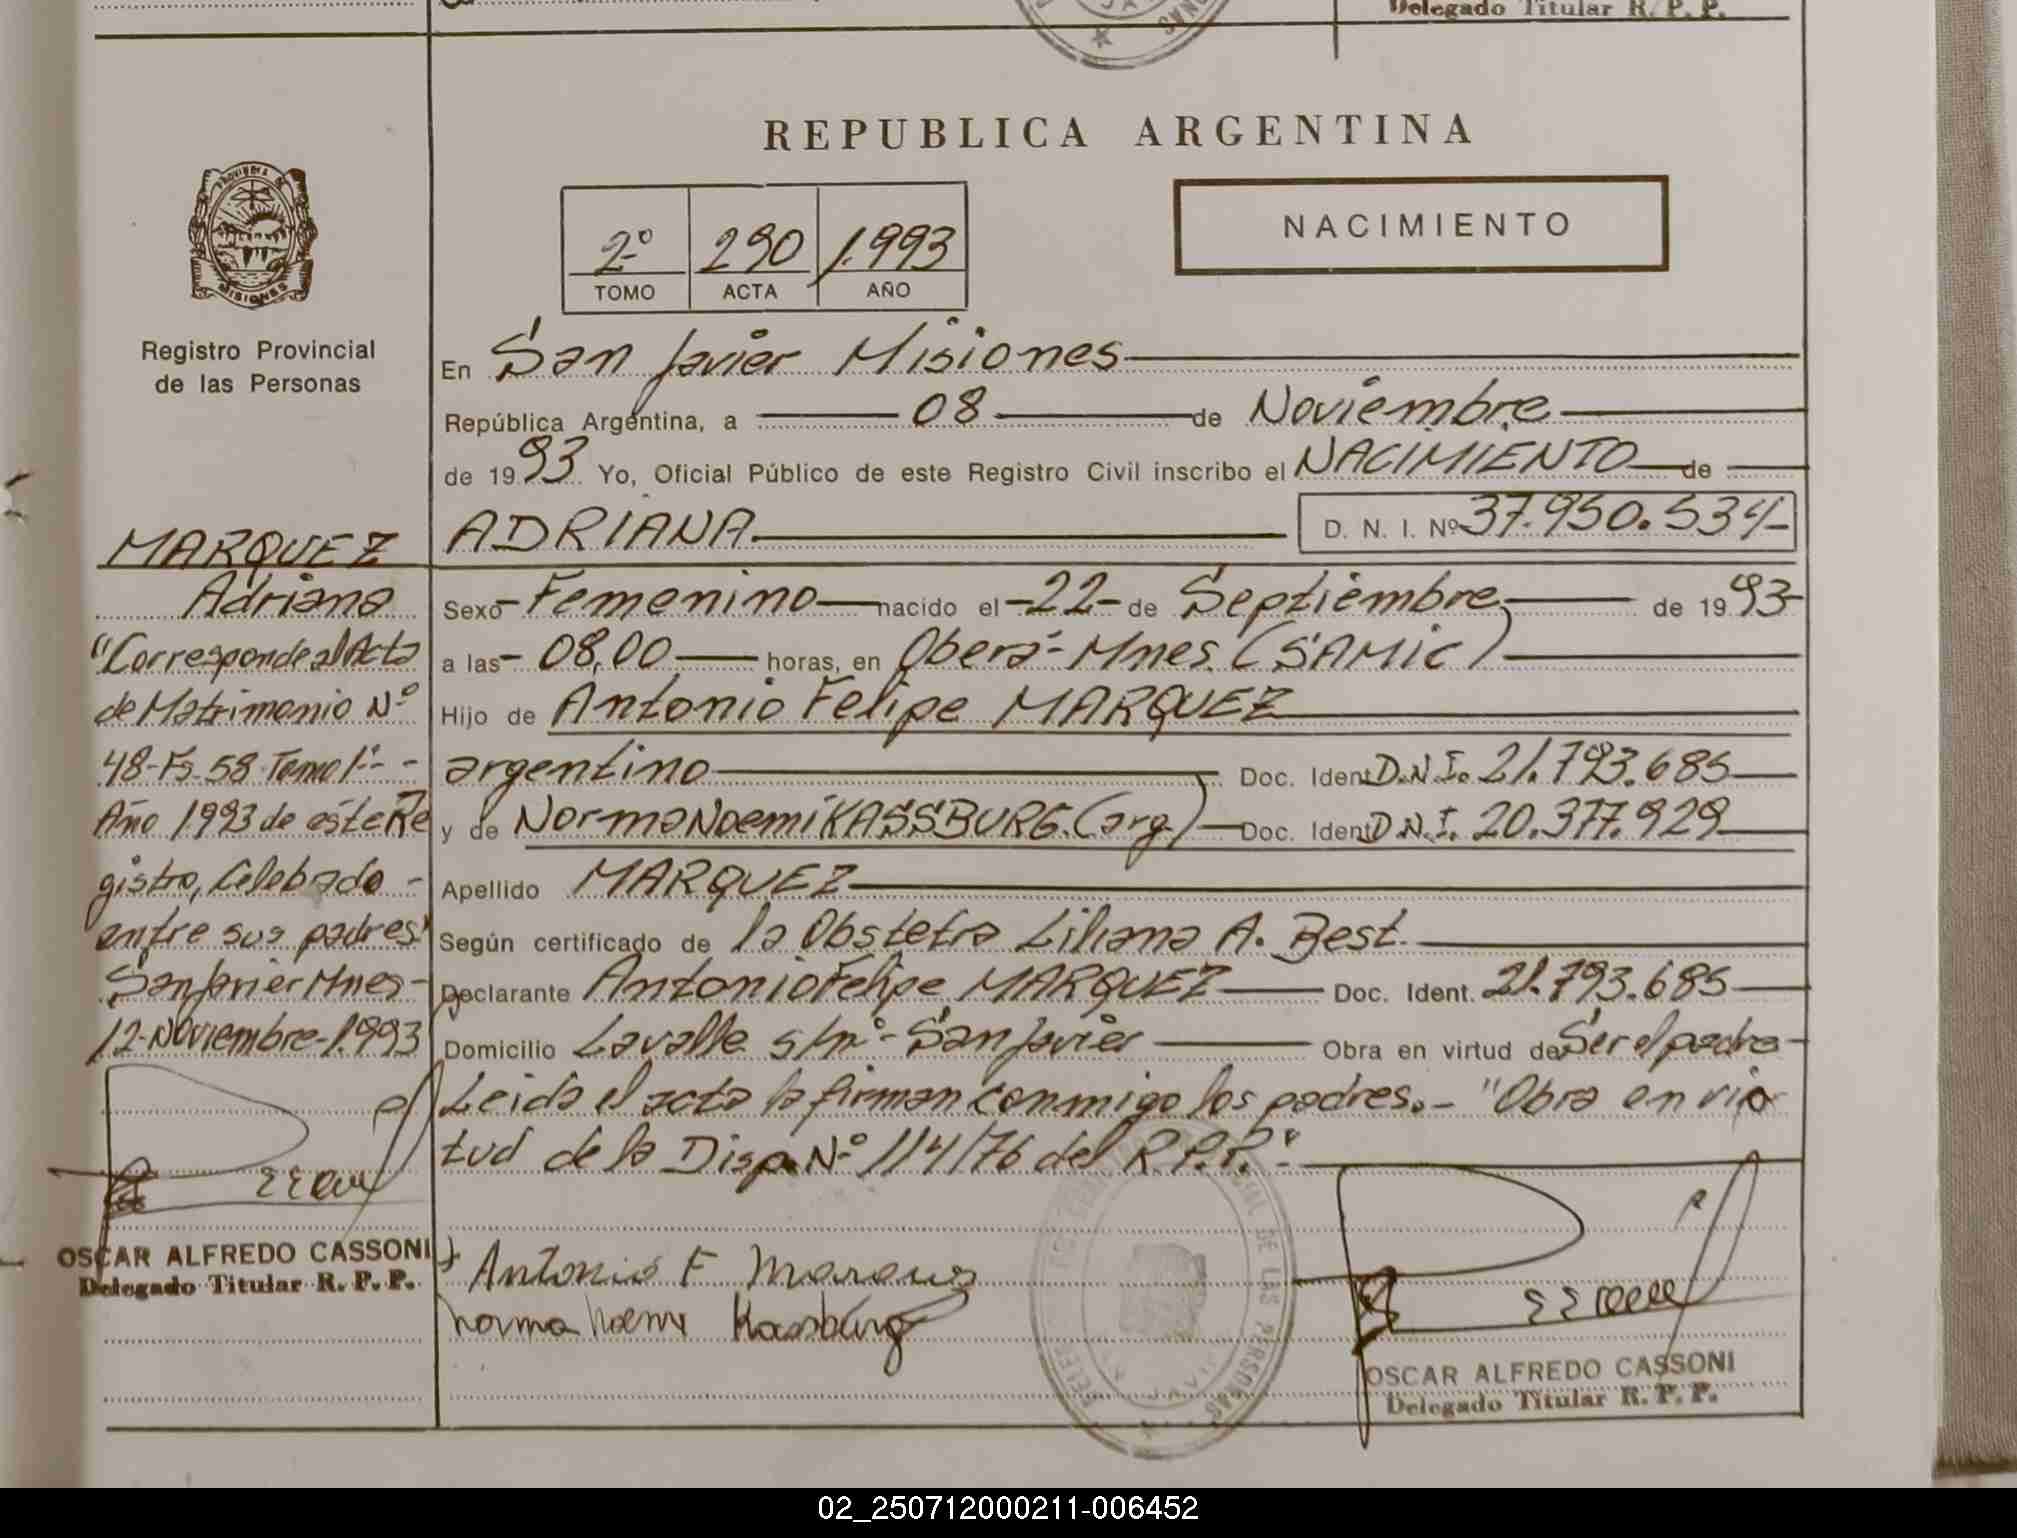 Delegado Titular R. P. P.
REPUBLICA ARGENTINA
NACIMIENTO
2º 290 1.993
TOMO ACTA AÑO
PROVINCIA DE
MISIONES
Registro Provincial
de las Personas
MARQUEZ
Adriana
"Corresponde al Acta
de Matrimonio Nº
48-Fs. 58-Tomo 1º- -
Año 1993 de éste Re
gistro, Celebrado -
entre sus padres"
San Javier Mnes-
12-Noviembre-1.993
OSCAR ALFREDO CASSONI
Delegado Titular R. P. P.
En San Javier Misiones
República Argentina, a 08 de Noviembre
de 1993 Yo, Oficial Público de este Registro Civil inscribo el NACIMIENTO de
ADRIANA D. N. I. Nº 37.950.534-
Sexo-Femenino nacido el-22-de Septiembre de 1993-
a las- 08,00 horas, en Oberá- Mnes. (SAMIC)
Hijo de Antonio Felipe MARQUEZ
argentino Doc. Ident D.N.I. 21.793.685
y de Norma Noemi KASSBURG. (arg.) Doc. Ident D.N.I. 20.377.929
Apellido MARQUEZ
Según certificado de la Obstetra Liliana A. Best.
Declarante Antonio Felipe MARQUEZ Doc. Ident. 21.793.685
Domicilio Lavalle s/nº- San Javier Obra en virtud de Ser el padre-
Leida el acta la firman conmigo los padres.- "Obra en vir
tud de la Disp. Nº 114/76 del R.P.P."-
Antonio F Marquez
Norma Noemi Kassburg
DE LAS PERSONAS
OSCAR ALFREDO CASSONI
Delegado Titular R. P. P.
02_250712000211-006452